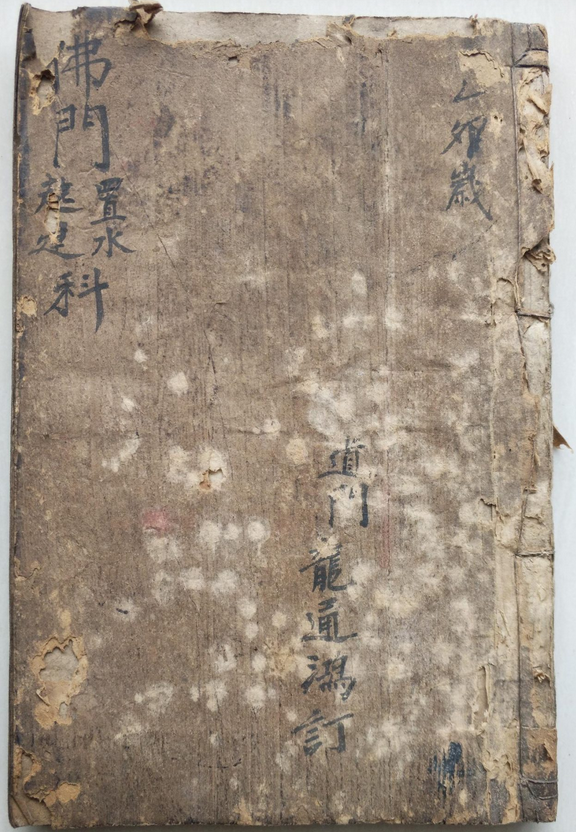 乙夘歲
道門 龍通鴻訂
佛門
置水
起建
科